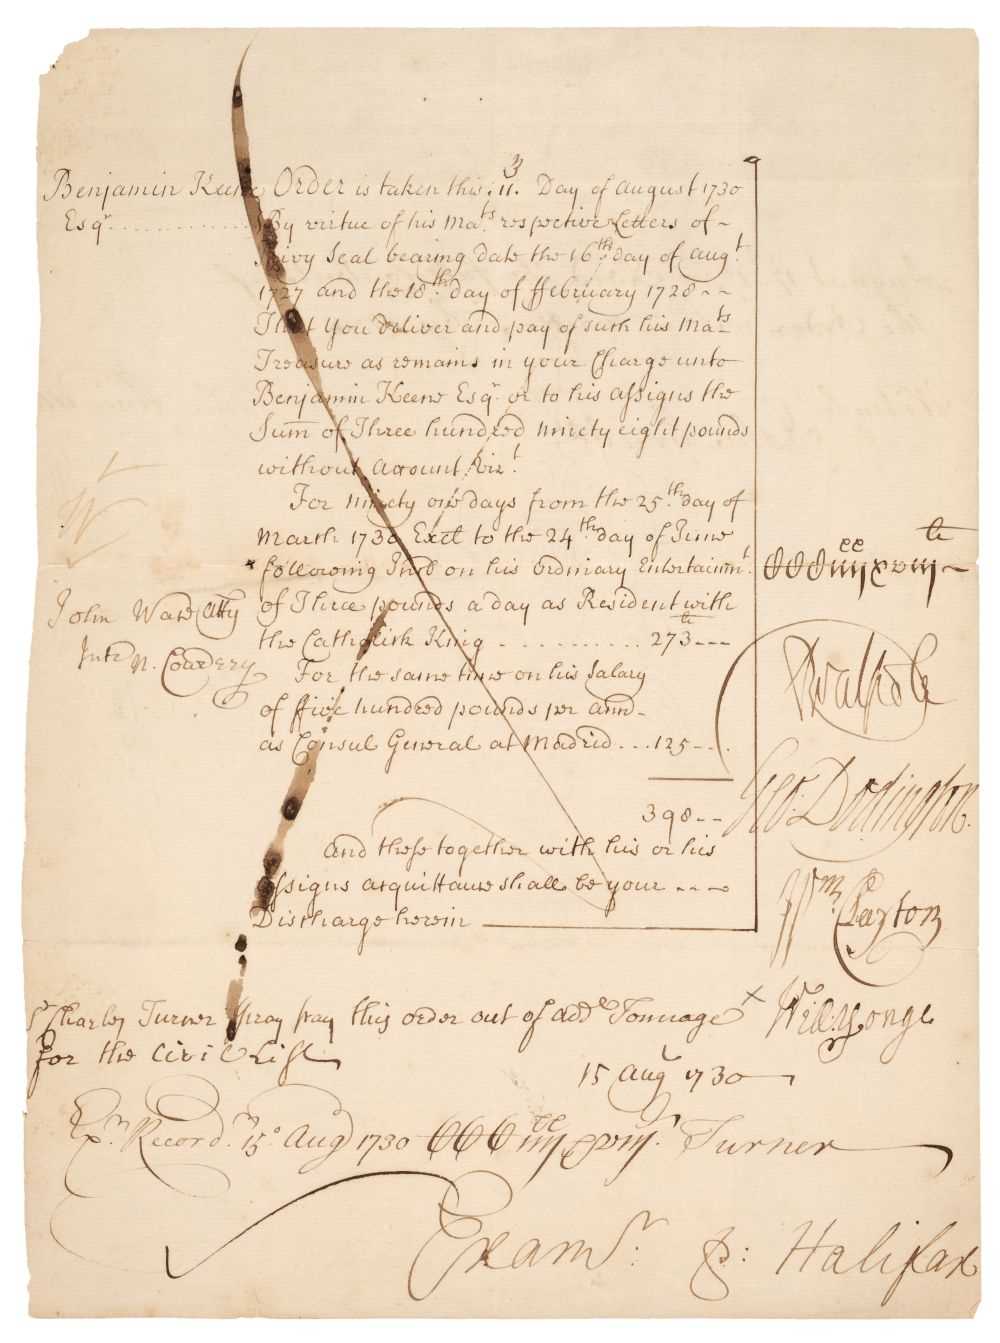 Benjamin Keene Order is taken this 11. 3 Day of August 1730
Esqr. By virtue of his Mats. respective Letters of
Privy Seal bearing date the 16th. day of Augt.
1727 and the 18th. day of ffebruary 1728
That you deliver and pay of such his Mats
Treasure as remains in your Charge unto
Benjamin Keene Esqr. or to his assigns the
Sum of Three hundred ninety eight pounds
without Account, vizt.
For ninety one days from the 25th. day of
March 1730 Excl to the 24th. day of June
following Incl on his Ordinary Entertainmt.
of Three pounds a day as Resident with
the Catholick King 273
For the same time on his Salary
of ffive hundred pounds per ann
as Consul General at Madrid ... 125
398
And these together with his or his
assigns acquittance shall be your
Discharge herein
John Ware Atty
Intr N. Cowdery
iiijxxxviij
RWalpole
Geo: Dodington.
Wm. Clayton
Will: Yonge
Sr Charles Turner Pray pay this order out of add Tonnage
for the Civil List
15 Augt 1730
Exr. Record. 15o Aug 1730 Turner
Examr. p: Halifax